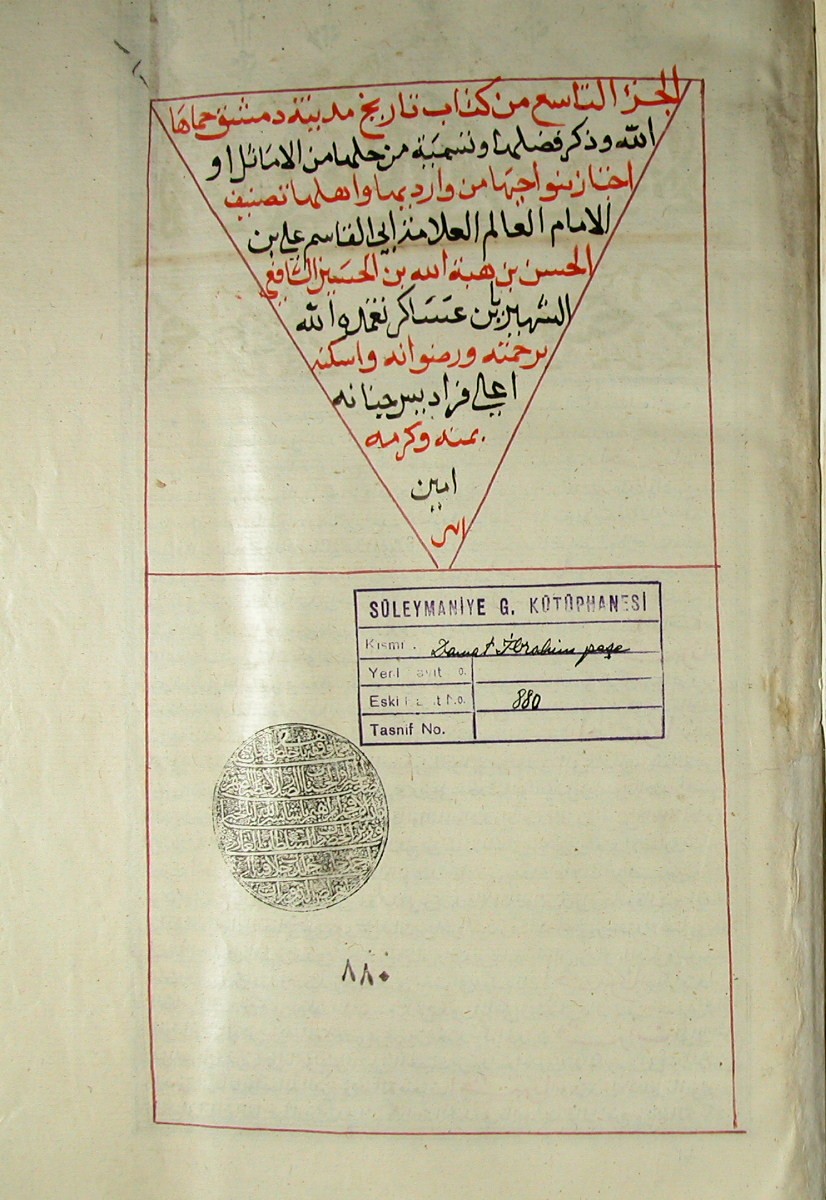 الجزء التاسع من كتاب تاريخ مدينة دمشق حماها
الله وذكر فضلها وتسمية من حلها من الاماثل او
اجتاز بنواحيها من وارديها واهلها تصنيف
الامام العالم العلامة ابي القاسم علي بن
الحسن بن هبة الله بن الحسين الشافعي
الشهير بابن عساكر تغمده الله
برحمته ورضوانه واسكنه
اعلى فراديس جنانه
بمنه وكرمه
امين
SÜLEYMANİYE G. KÜTÜPHANESİ
Kısmı Damat İbrahim paşa
Yeni Kayıt No.
Eski Kayıt No. 880
Tasnif No.
٨٨٠